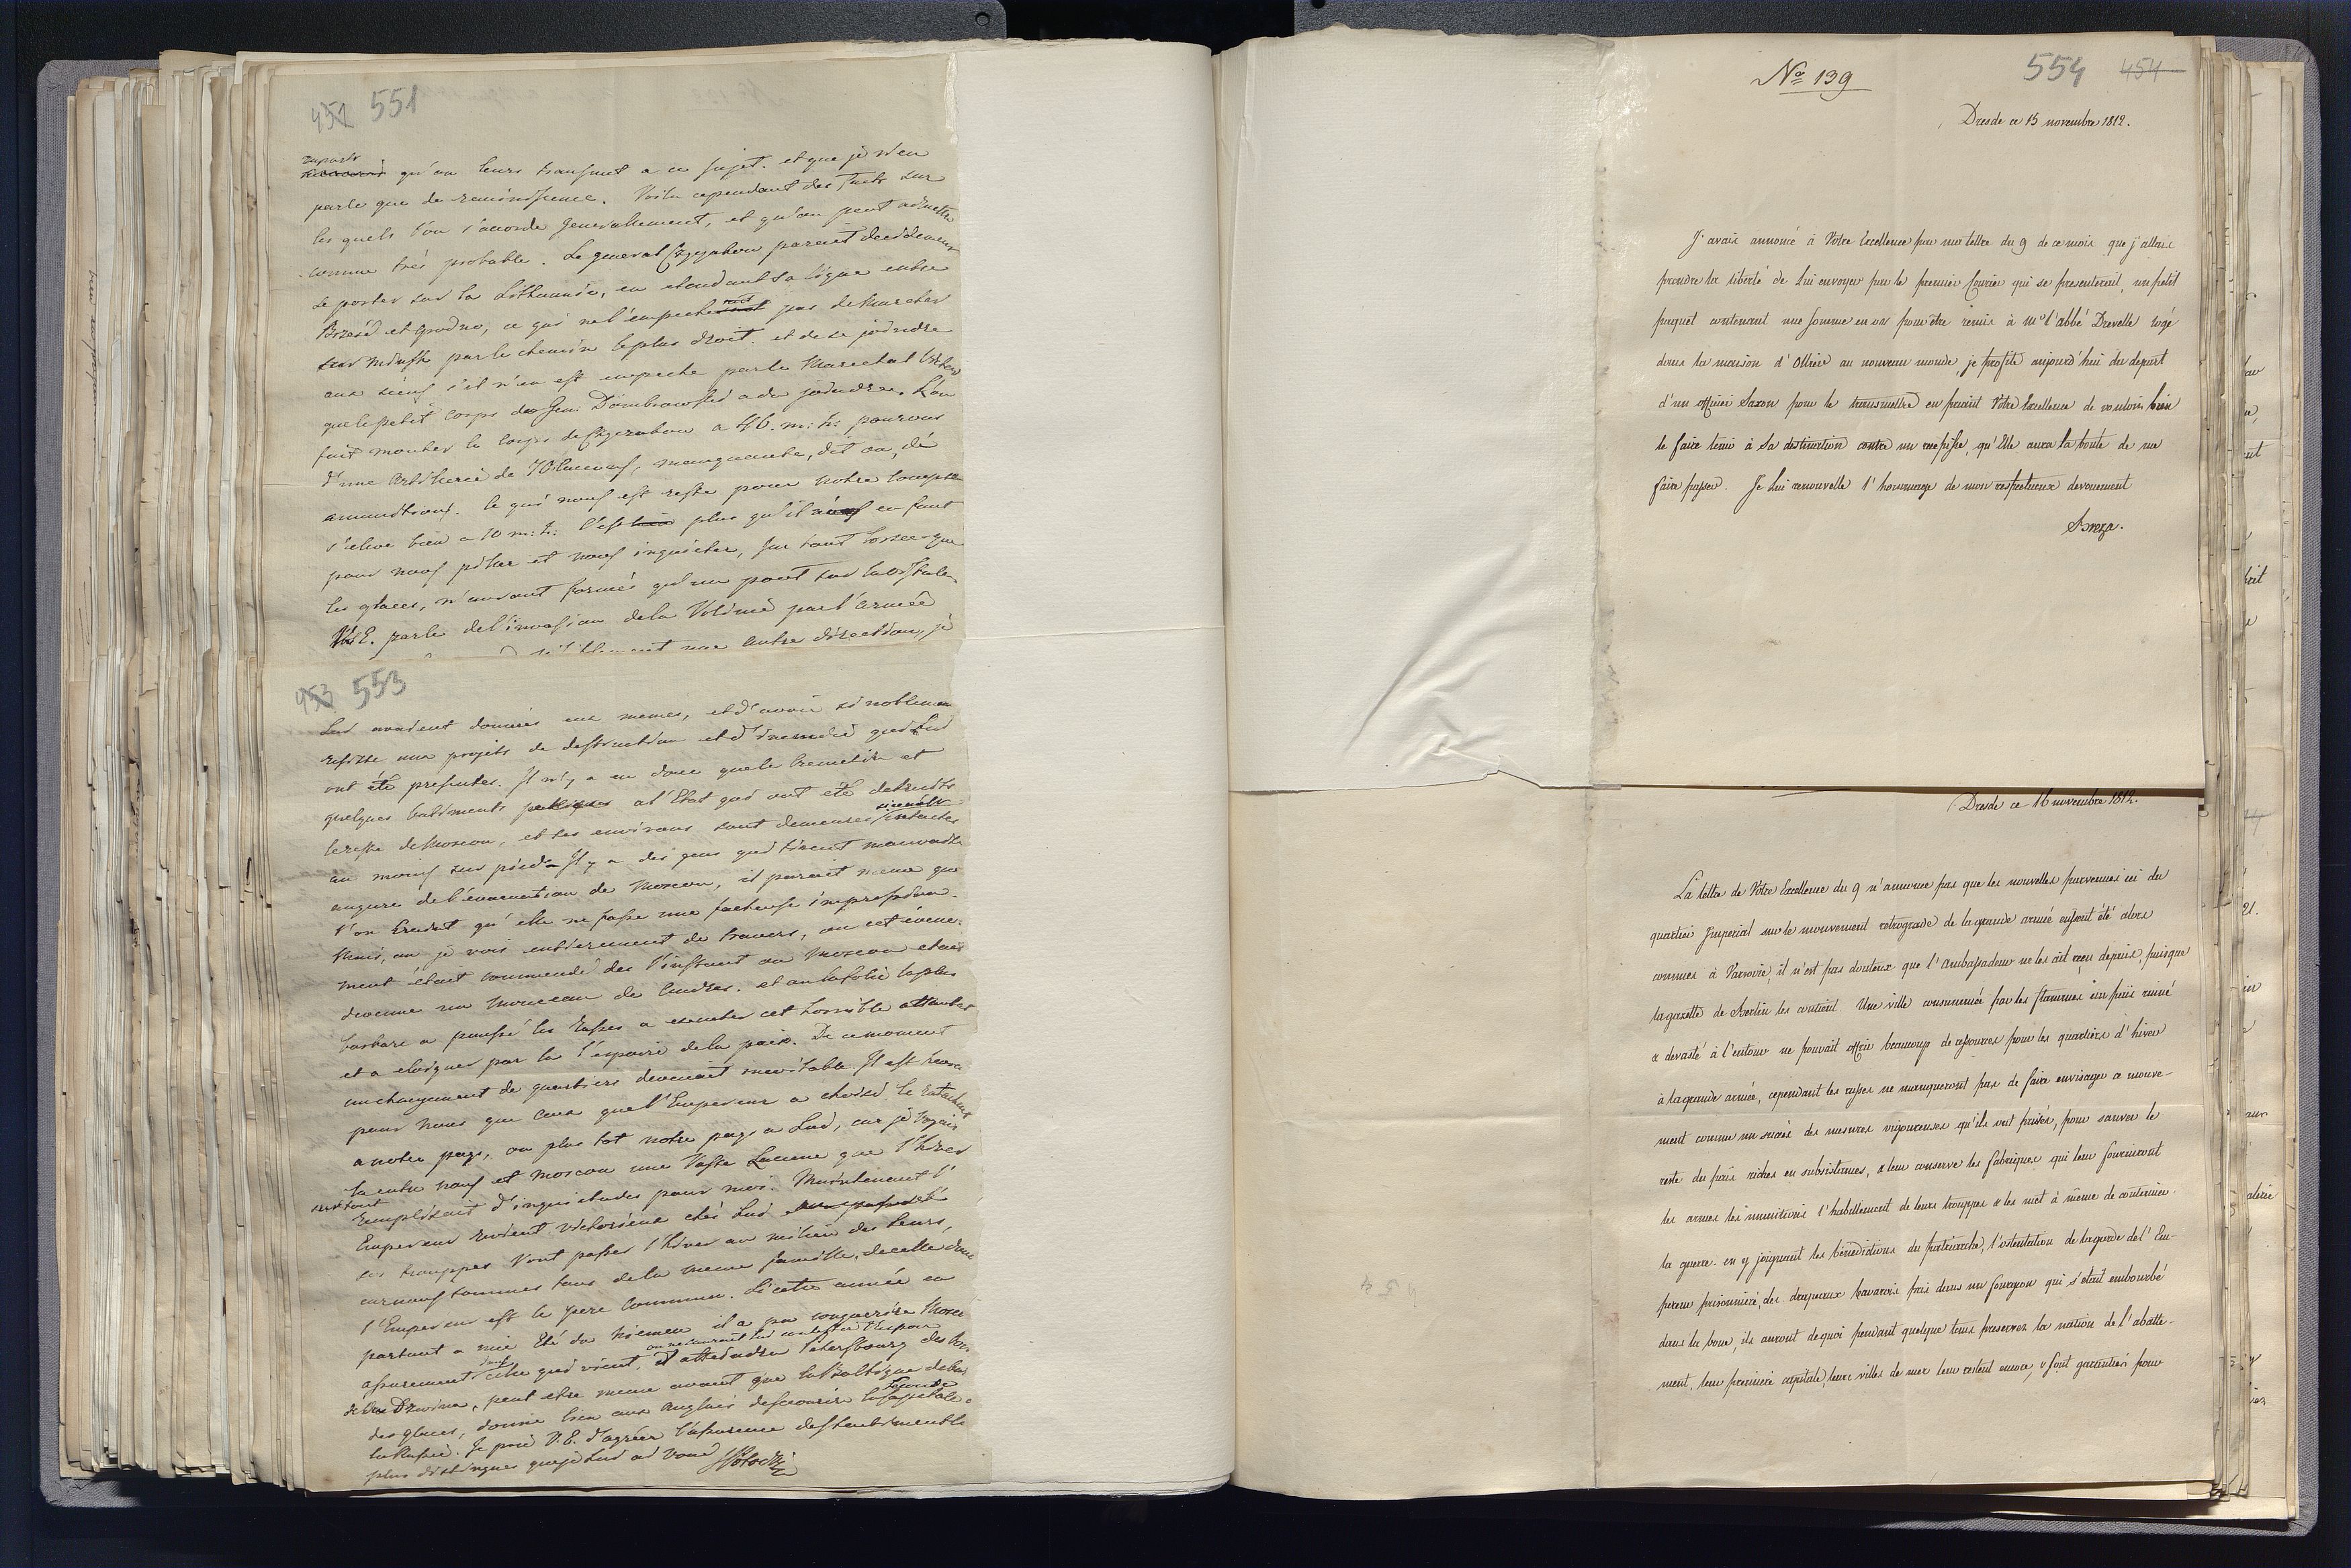 451 551
raports
qu'on leurs transmet a ce sujet. et que je n'en
parle que de reminiscence. Voila cependant des faits sur
les quels l'on s'accorde generallement, et qu'on peut admettre
comme très probable. Le general Czyczakow parait decidement
se porter sur la Lithuanie, en etendant sa ligne entre
Brzesc et Grodno, ce qui ne l'empecherait pas de marcher
sur Minsk par le chemin le plus droit. et de se joindre
aux siens s'il n'en est empeche par le Marechal Victor
que le petit corps du Gen: Dombrowski a du joindre. L'on
fait monter le corps de Czyczakow a 46. m: h: pourvus
d'une Artillerie de 70 canons, manquante, dit on, de
amunitions. Ce qui nous est reste pour notre compte
s'eleve bien a 10 m: h: c'est plus qu'il n'en faut
pour nous piller et nous inquieter, sur tout lorsque
les glaces, n'auront formés qu'un pont sur la Vistule.
V.E. parle de l'invasion de la Volinie par l'armée
une autre direction, je
453 553
Lui avaient donnés eux memes, et d'avoir si noblement
resisté aux projets de destruction et d'incendie qui Lui
ont été presentes. Il n'y a eu donc que le Cremelin et
quelques batiments publiques al Etat qui ont été detruits
le reste de Moscou, et ses environs sont demeurés sinon intactes
au moins sur pied. Il y a des gens qui tirent mauvaise
augure de l'evacuation de Moscou, il parait meme que
l'on craint qu'elle ne fasse une facheuse impression.
Mais, ou je vois entierement de travers, ou cet évene-
ment était commendé des l'instant ou Moscou etait
devenue un monceau de cendres. et ou la folie la plus
barbare a poussé les Russes a executer cet horrible attentat
et a eloigner par la l'espoire de la paix. De ce moment
un changement de quartiers devenait inevitable. Il est heureux
pour nous que ceux que l'Empereur a choisi, Le ratachent
a notre pays, ou plus tot notre pays a Lui, car je voyais
la entre nous et Moscou une vaste Lacune que l'hiver
surtout
remplissait d'inquietudes pour moi. Maintenant l'
Empereur revient victorieux chés Lui
ses trouppes vont passer l'hiver au milieu des leurs,
car nous sommes tous de la meme famille, de celle dont
l'Empereur est le pere commun. Si cette année en
partant a mie Eté du Niemen il a pu conquerire Moscou
assurement celle qui vient, il atteindra Petersbourg des bords
de la Dzwina, peut etre meme avant que la Baltique debarassée
des glaces, donne lieu aux Anglais de secourir la seconde Capitale de
la Russie. Je prie V.E. d'agréer l'assurance des sentiments les
plus distingues que je Lui ai voué SPotocki
No 139
554 454
Dresde ce 15 novembre 1812.
J'avais annoncé à Votre Excellence par ma lettre du 9 de ce mois que j'allais
prendre la liberté de Lui envoyer par le premier Courier qui se presenterait, un petit
paquet contenant une somme en or pour être remis à Mr l'abbé Drevelle logé
dans la maison d'Ollier au nouveau monde, je profite aujourd'hui du depart
d'un officier Saxon pour le transmettre en priant Votre Excellence de vouloir bien
le faire tenir à Sa destination contre un recepisse, qu'Elle aura la bonté de me
faire passer. Je Lui renouvelle l'hommage de mon respectueux devouement
Breza.
Dresde ce 16 novembre 1812.
La lettre de Votre Excellence du 9 n'annonce pas que les nouvelles parvenues ici du
quartier Imperial sur le mouvement retrograde de la grande armée eussent été alors
connues à Varsovie, il n'est pas douteux que l'Ambassadeur ne les ait reçu depuis, puisque
la gazette de Berlin les contient. Une ville consummée par les flammes un païs ruiné
& devasté à l'entour ne pouvait offrir beaucoup de ressources pour les quartiers d'hiver
à la grande armée, cependant les russes ne manqueront pas de faire envisager ce mouve-
ment comme un succès des mesures vigoureuses qu'ils ont prises, pour sauver le
reste du païs riches en subsistances, & leur conserve les fabriques qui leur fourniront
les armes les munitions l'habillement de leurs trouppes & les met à même de continuer
la guerre. en y joignant les bénédictions du patriarche, l'ostentation de la garde de l'Em-
pereur prisonniere, des drapeaux bavarois pris dans un fourgon qui s'etait embourbé
dans la boue, ils auront de quoi pendant quelque tems preserver la nation de l'abatte-
ment, leur premiere capitale, leurs villes de mer leur restent encore, & sont garanties pour